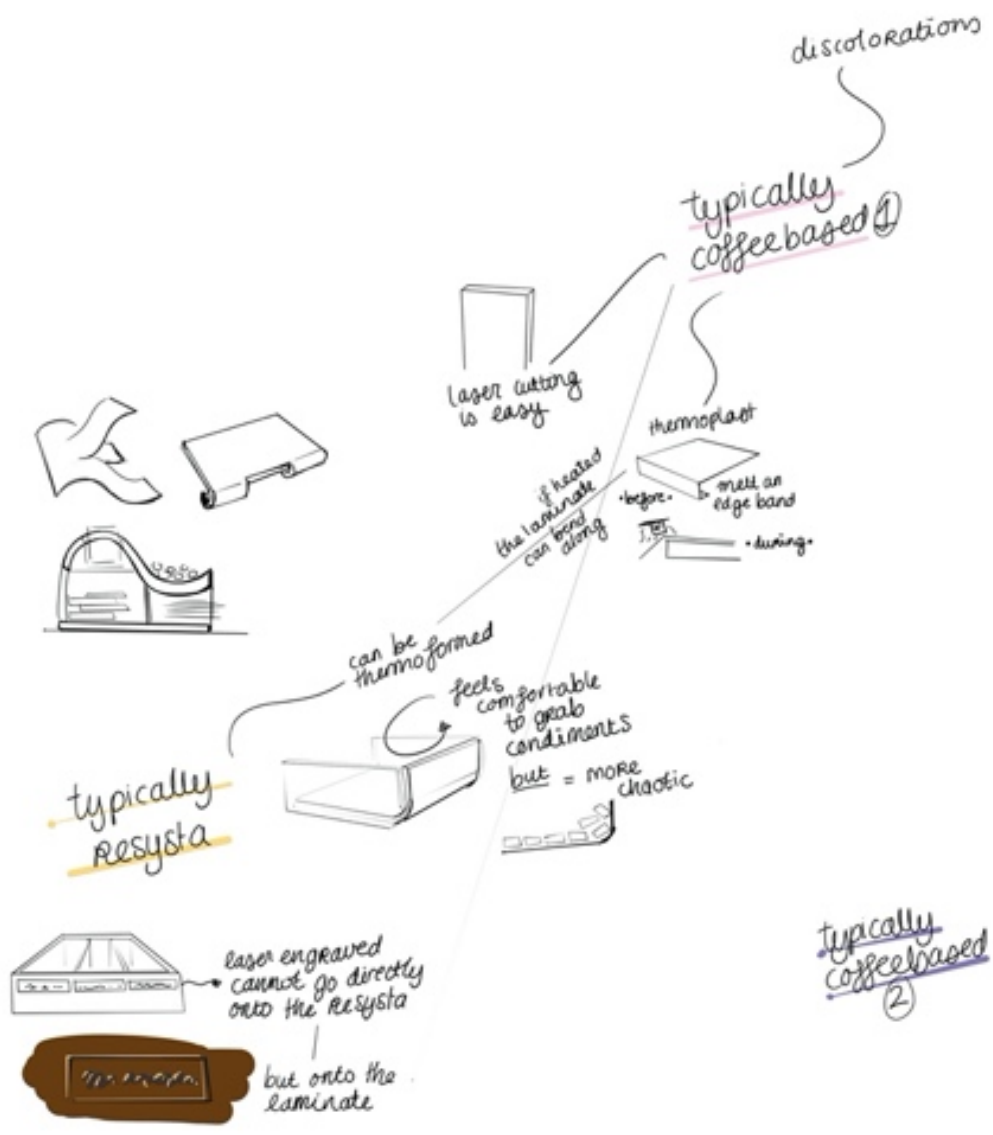 discolorations
typically
coffeebased 1
laser cutting
is easy
thermoplast
•before•
melt an
edge band
•during•
if heated
the laminate
can bend
along
can be
thermoformed
feels
comfortable
to grab
condiments
but = more
chaotic
typically
Resysta
laser engraved
cannot go directly
onto the Resysta
but onto the
laminate
typically
coffeebased
2